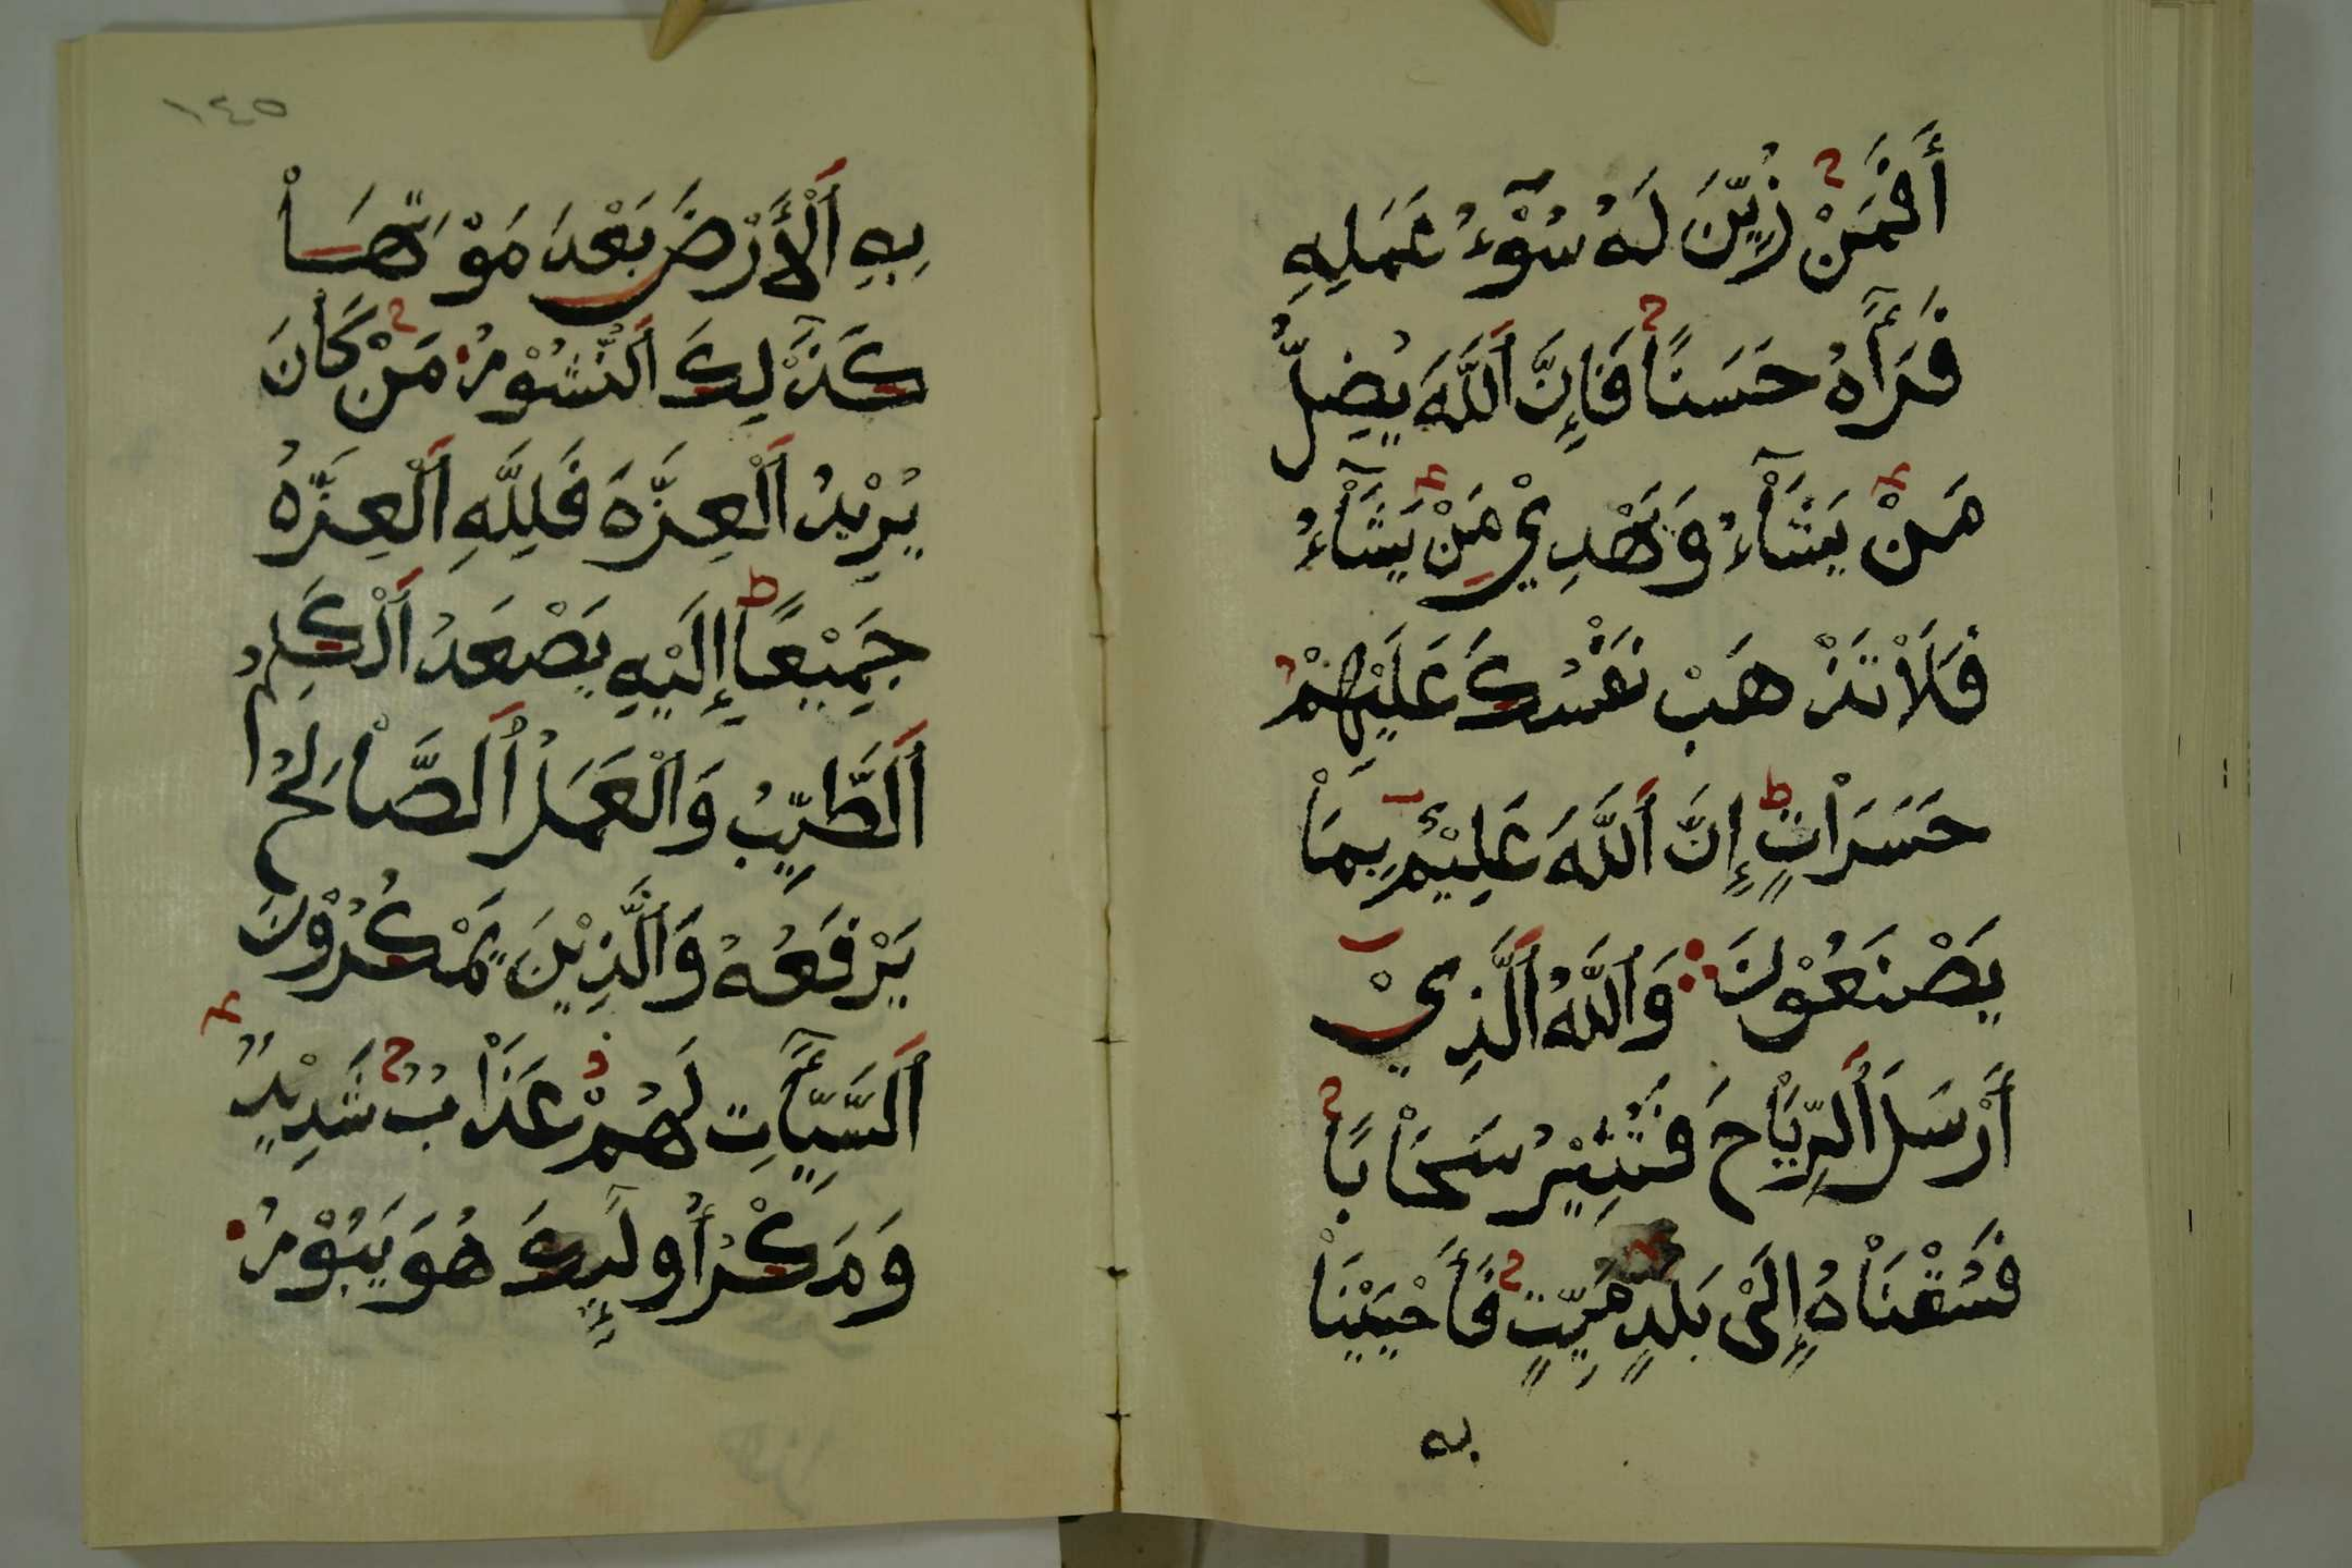 أَفَمَنْ زُيِّنَ لَهُ سُوْٓءُ عَمَلِهِ
فَرَأٰهُ حَسَنًا فَإِنَّ اَللَّهَ يُضِلُّ
مَنْ يَشَآءُ وَيَهْدِيْ مَنْ يَشَآءُ
فَلَاْ تَذْهَبْ نَفْسُكَ عَلَيْهِمْ
حَسَرَاْتٍ إِنَّ اَللَّهَ عَلِيْمٌ بِمَاْ
يَصْنَعُوْنَ وَاَللَّهُ اَلَّذِيْ
أَرْسَلَ اَلرِّيَاْحَ فَتُثِيْرُ سَحَاْبًا
فَسُقْنَاْهُ إِلَىْ بَلَدٍ مَيِّتٍ فَأَحْيَيْنَاْ
به
١٤٥
بِهِ اَلْأَرْضَ بَعْدَ مَوْتِهَاْ
كَذَٰلِكَ اَلنُّشُوْرُ مَنْ كَاْنَ
يُرِيْدُ اَلْعِزَّةَ فَلِلَّهِ اَلْعِزَّةُ
جَمِيْعًا إِلَيْهِ يَصْعَدُ اَلْكَلِمُ
اَلطَّيِّبُ وَاَلْعَمَلُ اَلصَّاْلِحُ
يَرْفَعُهُ وَاَلَّذِيْنَ يَمْكُرُوْنَ
اَلسَّيِّأٰتِ لَهُمْ عَذَاْبٌ شَدِيْدٌ
وَمَكْرُ أُولَٰٓئِكَ هُوَ يَبُوْرُ